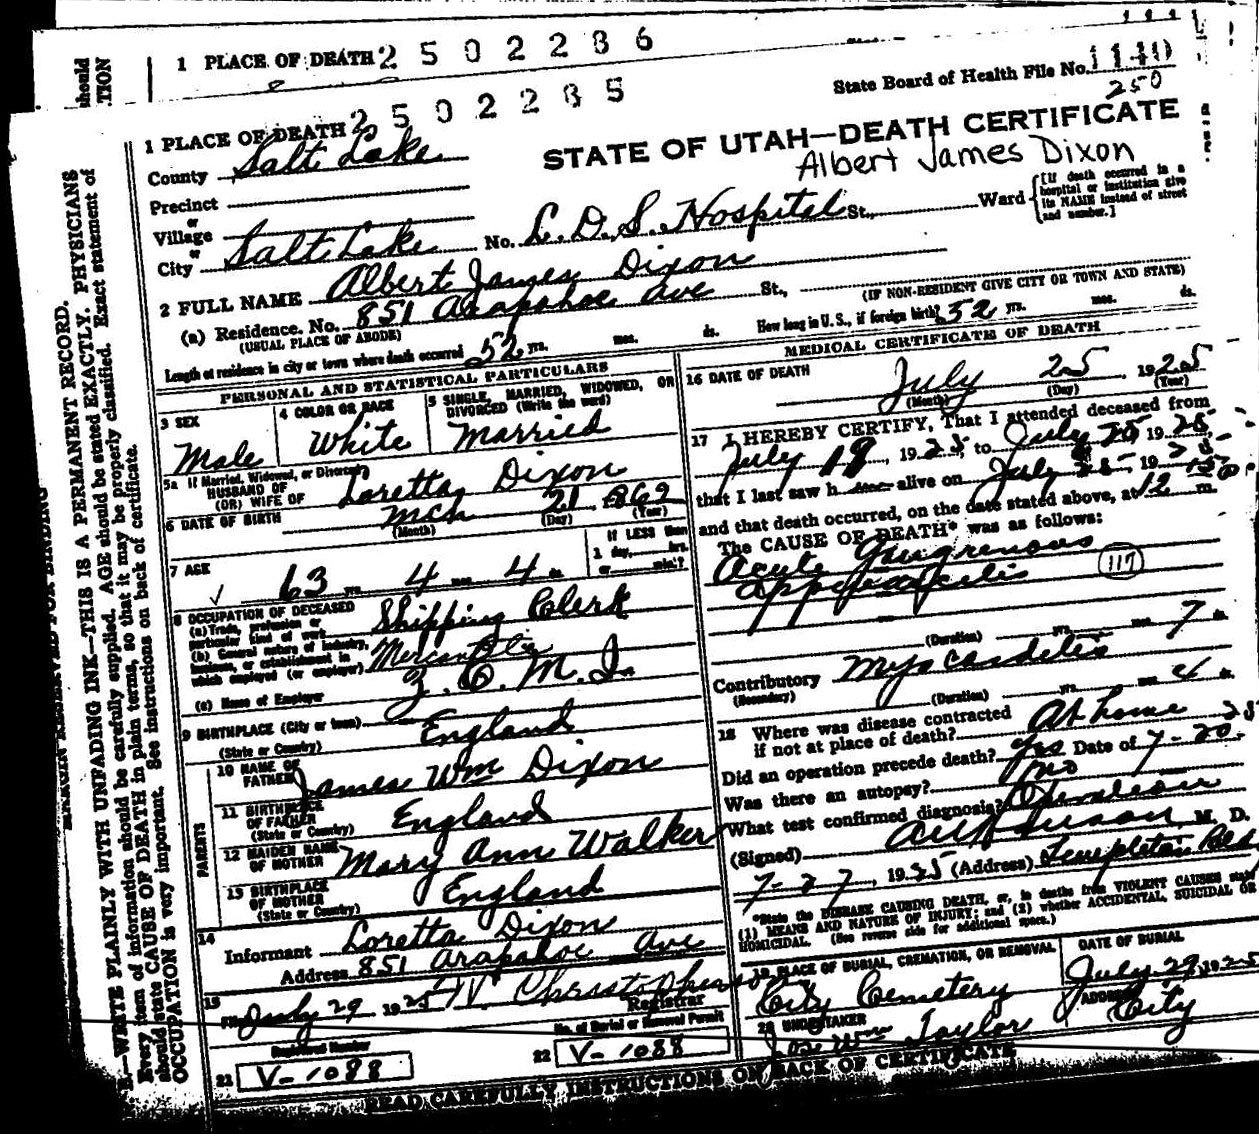 1 PLACE OF DEATH 2502286
State Board of Health File No. 1140
250
1 PLACE OF DEATH 2502285
STATE OF UTAH—DEATH CERTIFICATE
Albert James Dixon
County Salt Lake
Precinct
or
Village
or
City Salt Lake No. L. D. S. Hospital St., Ward [If death occurred in a hospital or institution give its NAME instead of street and number.]
2 FULL NAME Albert James Dixon
(a) Residence. No. 851 Arapahoe Ave St., (IF NON-RESIDENT GIVE CITY OR TOWN AND STATE)
(USUAL PLACE OF ABODE)
Length of residence in city or town where death occurred 52 yrs. mos. ds. How long in U. S., if foreign birth? 52 yrs. mos. ds.
PERSONAL AND STATISTICAL PARTICULARS
3 SEX
Male
4 COLOR OR RACE
White
5 SINGLE, MARRIED, WIDOWED, OR DIVORCED (Write the word)
Married
5a If Married, Widowed, or Divorced
HUSBAND OF
(OR) WIFE OF Loretta Dixon
6 DATE OF BIRTH Mch 21 1862
(Month) (Day) (Year)
7 AGE 63 yrs. 4 mos. 4 ds.
If LESS than 1 day, hrs. or min.?
8 OCCUPATION OF DECEASED
(a) Trade, profession or particular kind of work Shipping Clerk
(b) General nature of industry, business, or establishment in which employed (or employer) Mercantile
(c) Name of Employer Z. C. M. I.
9 BIRTHPLACE (City or town)
(State or Country) England
PARENTS
10 NAME OF FATHER James Wm Dixon
11 BIRTHPLACE OF FATHER
(State or Country) England
12 MAIDEN NAME OF MOTHER Mary Ann Walker
13 BIRTHPLACE OF MOTHER
(State or Country) England
14
Informant Loretta Dixon
Address 851 Arapahoe Ave
15
July 29 1925 Christopherson
Registrar
Registered Number
No. of Burial or Removal Permit
21 V-1088
22 V-1088
MEDICAL CERTIFICATE OF DEATH
16 DATE OF DEATH July 25, 1925
(Month) (Day) (Year)
17 I HEREBY CERTIFY, That I attended deceased from
July 19, 1925, to July 25 1925
that I last saw h alive on July 25, 19
and that death occurred, on the date stated above, at 12 m.
The CAUSE OF DEATH* was as follows:
Acute Gangrenous
Appendicitis
117
(Duration) yrs. mos. 7 ds.
Contributory Myocarditis
(Secondary) (Duration) yrs. mos. 4 ds.
18 Where was disease contracted
if not at place of death? At home
Did an operation precede death? Yes Date of 7-20-25
Was there an autopsy? No
What test confirmed diagnosis? Operation
(Signed) M. D.
7-27, 1925 (Address) Templeton Bld
*State the DISEASE CAUSING DEATH, or, in deaths from VIOLENT CAUSES state
(1) MEANS AND NATURE OF INJURY; and (2) whether ACCIDENTAL, SUICIDAL OR
HOMICIDAL. (See reverse side for additional space.)
19 PLACE OF BURIAL, CREMATION, OR REMOVAL
City Cemetery
DATE OF BURIAL
July 29, 1925
20 UNDERTAKER
Jos Wm Taylor
ADDRESS
City
READ CAREFULLY INSTRUCTIONS ON BACK OF CERTIFICATE
MARGIN RESERVED FOR BINDING
B.—WRITE PLAINLY WITH UNFADING INK—THIS IS A PERMANENT RECORD.
Every item of information should be carefully supplied. AGE should be stated EXACTLY. PHYSICIANS
should state CAUSE OF DEATH in plain terms, so that it may be properly classified. Exact statement of
OCCUPATION is very important. See instructions on back of certificate.